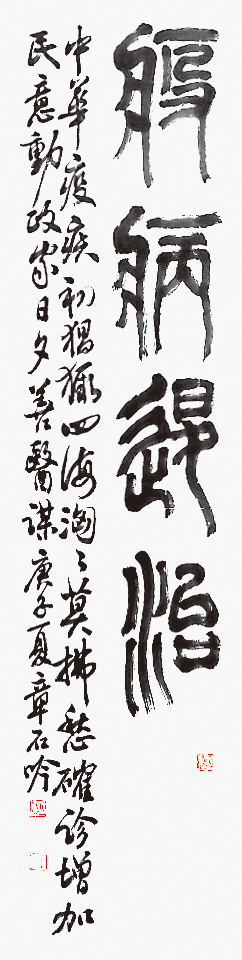 疫病退治
中華疫疾初猖獗四海洶々莫拂愁確診增加
民意動政家日夕善醫謀庚子夏章石吟